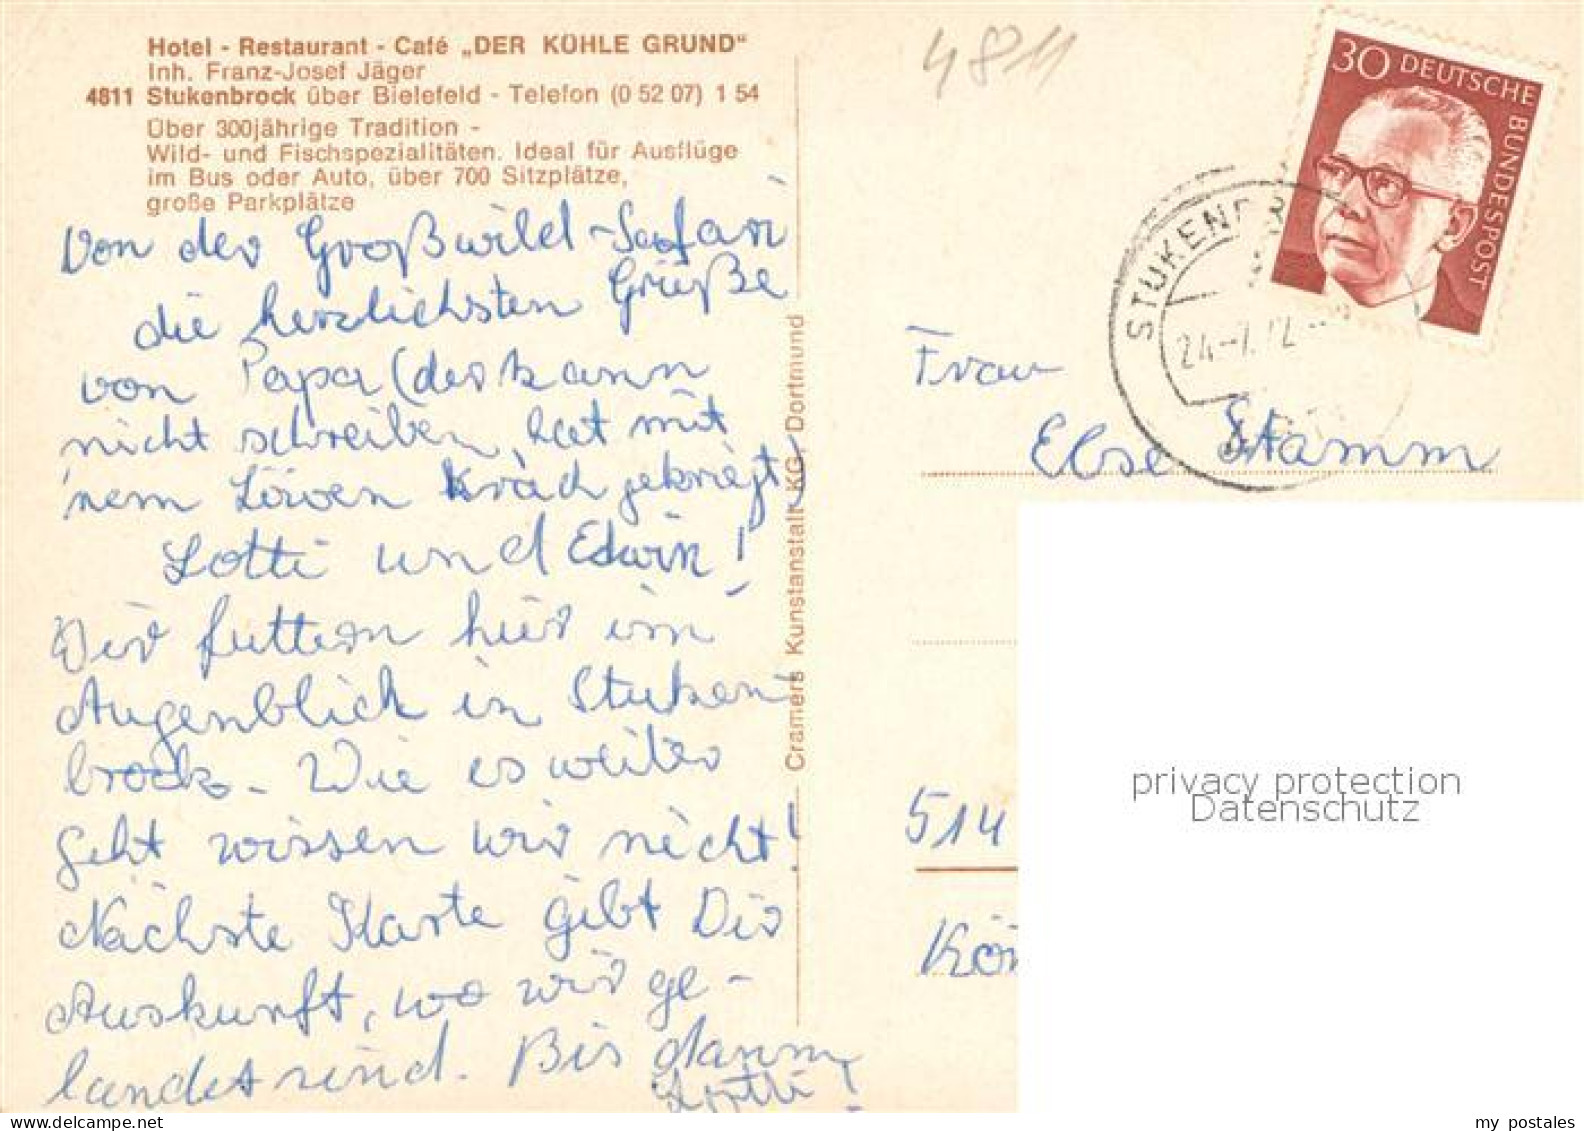 Hotel - Restaurant - Café „DER KÜHLE GRUND"
Inh. Franz-Josef Jäger
4811 Stukenbrock über Bielefeld - Telefon (0 52 07) 1 54
Über 300jährige Tradition -
Wild- und Fischspezialitäten. Ideal für Ausflüge
im Bus oder Auto, über 700 Sitzplätze,
große Parkplätze
Von der Großwild-Safari
die herzlichsten Grüße
von Papa (der kann
nicht schreiben, hat mit
'nem Löwen Krach gekriegt)
Lotti und Edwin!
Wir futtern hier im
Augenblick in Stuken-
brock. Wie es weiter
geht wissen wir nicht!
Nächste Karte gibt Dir
Auskunft, wo wir ge-
landet sind. Bis dann,
Lotti!
Cramers Kunstanstalt KG, Dortmund
4811
30 DEUTSCHE BUNDESPOST
STUKENBR
24.-7.72
Frau
Else Stamm
514
Kön
privacy protection
Datenschutz
my postales